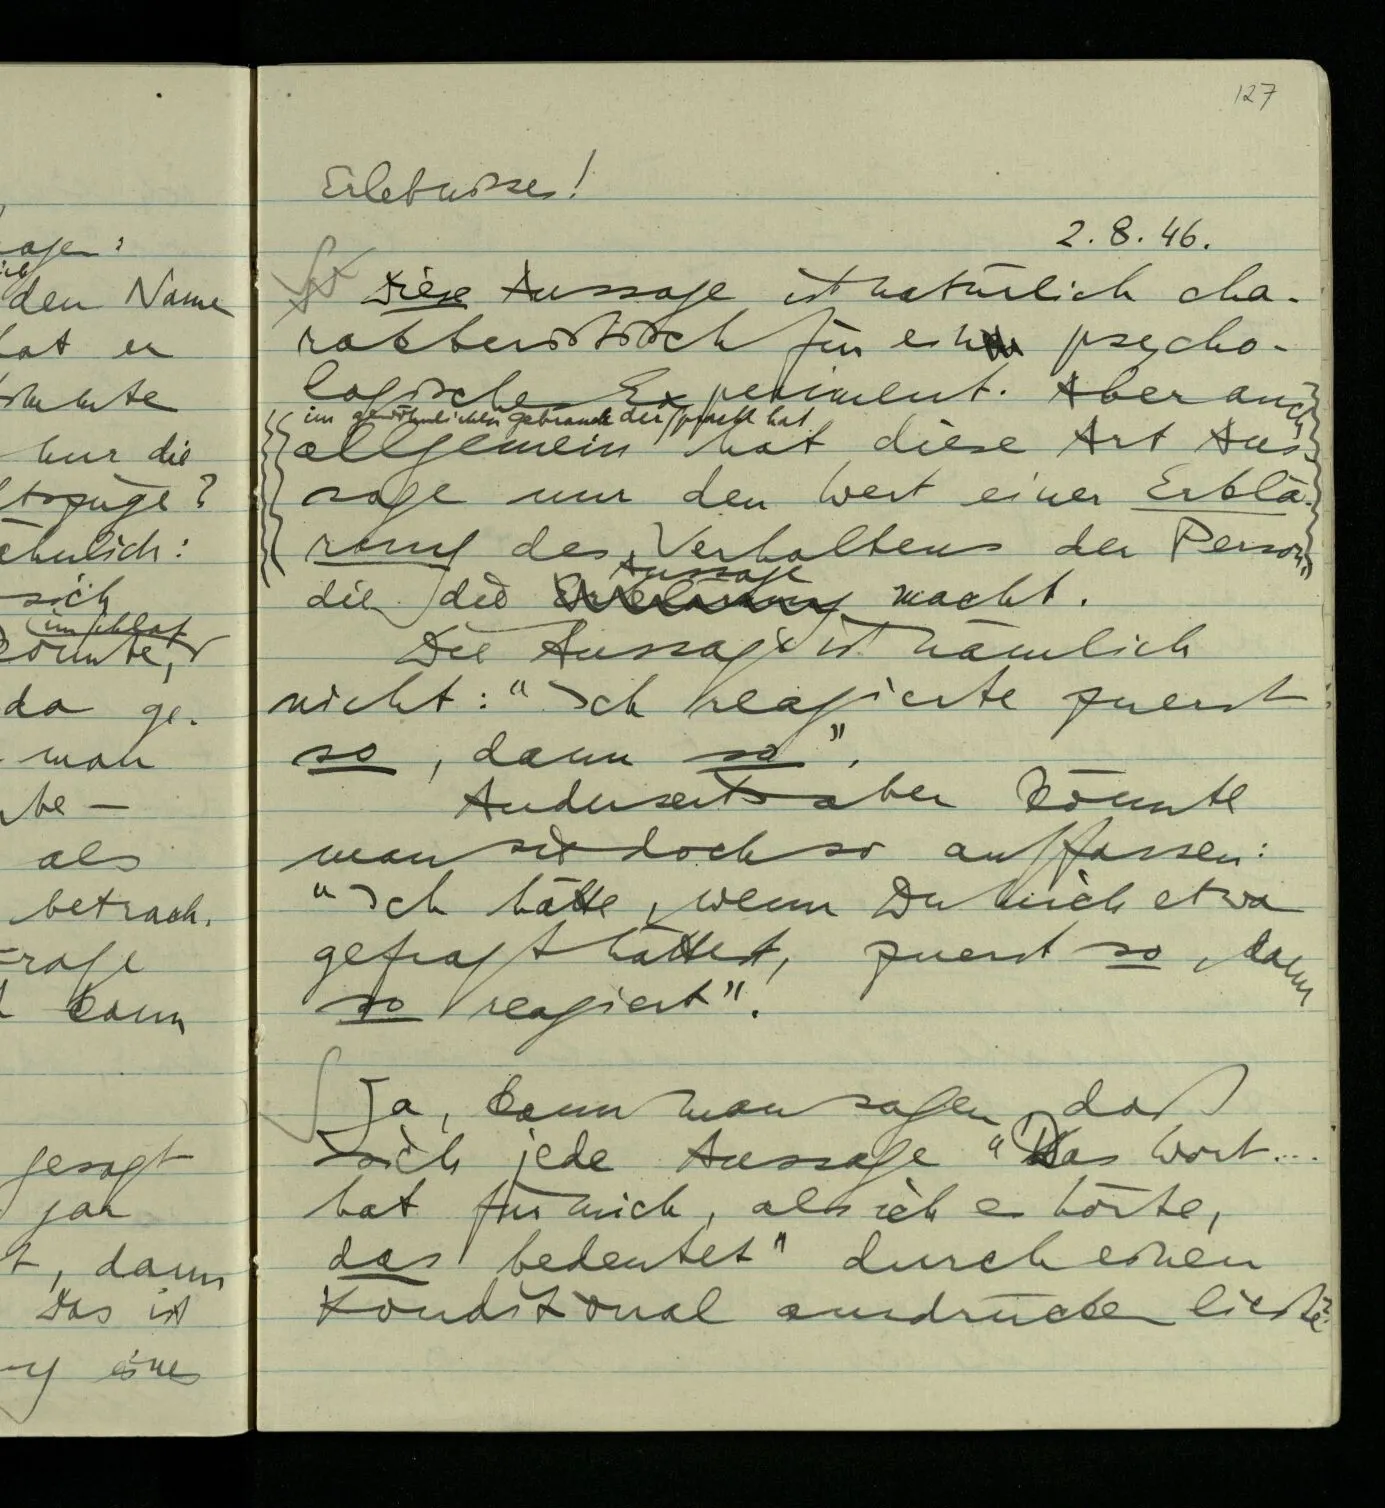 agen:
ich
den Name
hat er
stimmte
nur die
tszüge?
ähnlich:
sich
im Schlaf
könnte,
da ge-
man
be –
als
betrach-
Frage
kann
gesagt
gar
t, dann
Das ist
eine
127
Erlebnisse!
2.8.46.
Diese Aussage ist natürlich cha-
rakteristisch für ein psycho-
logische Experiment. Aber auch
im gewöhnlichen Gebrauch der Sprache hat
allgemein hat diese Art Aus-
sage nur den Wert einer Erklä-
rung des Verhaltens der Person,
Aussage
die die Erklärung macht.
Die Aussage ist nämlich
nicht: "Ich reagierte zuerst
so, dann so".
Anderseits aber könnte
man sie doch so auffassen:
"Ich hätte, wenn Du mich etwa
gefragt hättest, zuerst so, dann
so reagiert".
Ja, kann man sagen, daß
sich jede Aussage "Das Wort...
hat für mich, als ich es hörte,
das bedeutet" durch einen
Konditional ausdrücken ließe?